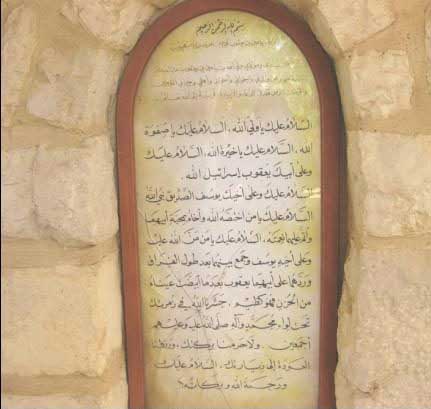 بسم الله الرحمن الرحيم
السلام عليك يا ولي الله، السلام عليك يا صفوة
الله، السلام عليك يا خيرة الله، السلام عليك
وعلى أبيك يعقوب إسرائيل الله
السلام عليك وعلى أخيك يوسف الصديق نبي الله
السلام عليك يا من اختصه الله وأخاه بمحبة أبيهما
وأتم عليهما نعمته، السلام عليك يا من من الله عليه
وعلى أخيه يوسف وجمع بينهما بعد طول الفراق
وردهما على أبيهما يعقوب بعد ما ابيضت عيناه
من الحزن فهو كظيم، حشرنا الله في زمرتك
تحت لواء محمد وآله صلى الله عليه وعليهم
أجمعين. ولا حرمنا بركتك، ورزقنا
العودة إلى زيارتك، السلام عليك
ورحمة الله وبركاته